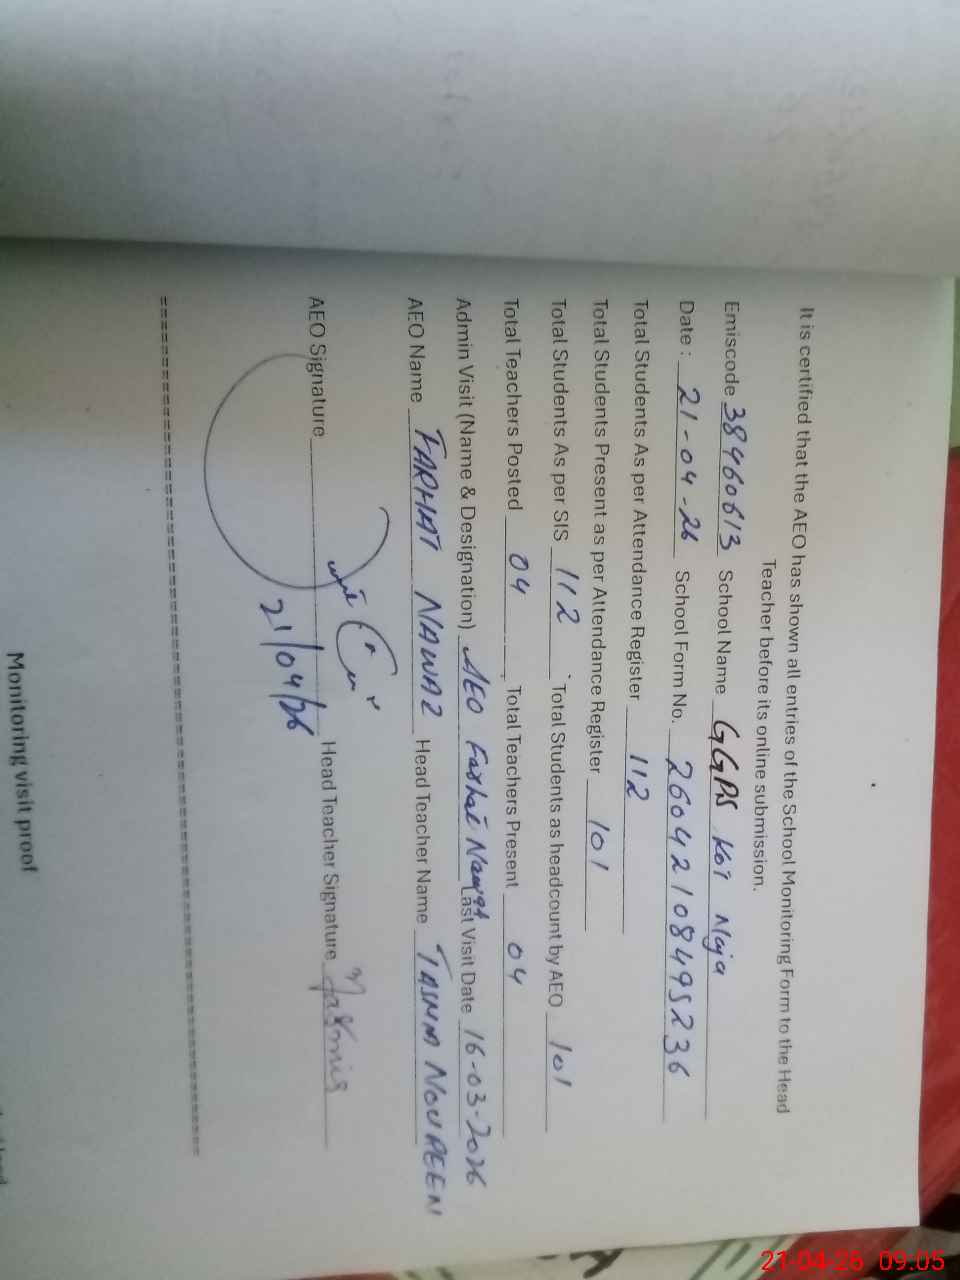 It is certified that the AEO has shown all entries of the School Monitoring Form to the Head
Teacher before its online submission.
Emiscode 38460613 School Name GGPS Kot Maja
Date : 21-04-26 School Form No. 260421084955236
Total Students As per Attendance Register 112
Total Students Present as per Attendance Register 101
Total Students As per SIS 112 Total Students as headcount by AEO 101
Total Teachers Posted 04 Total Teachers Present 04
Admin Visit (Name & Designation) AEO Farhat Nawaz Last Visit Date 16-03-2026
AEO Name FARHAT NAWAZ Head Teacher Name TASNM NOUREEN
AEO Signature Head Teacher Signature
21/04/26
================================
Monitoring visit proof
21-04-26 09:05